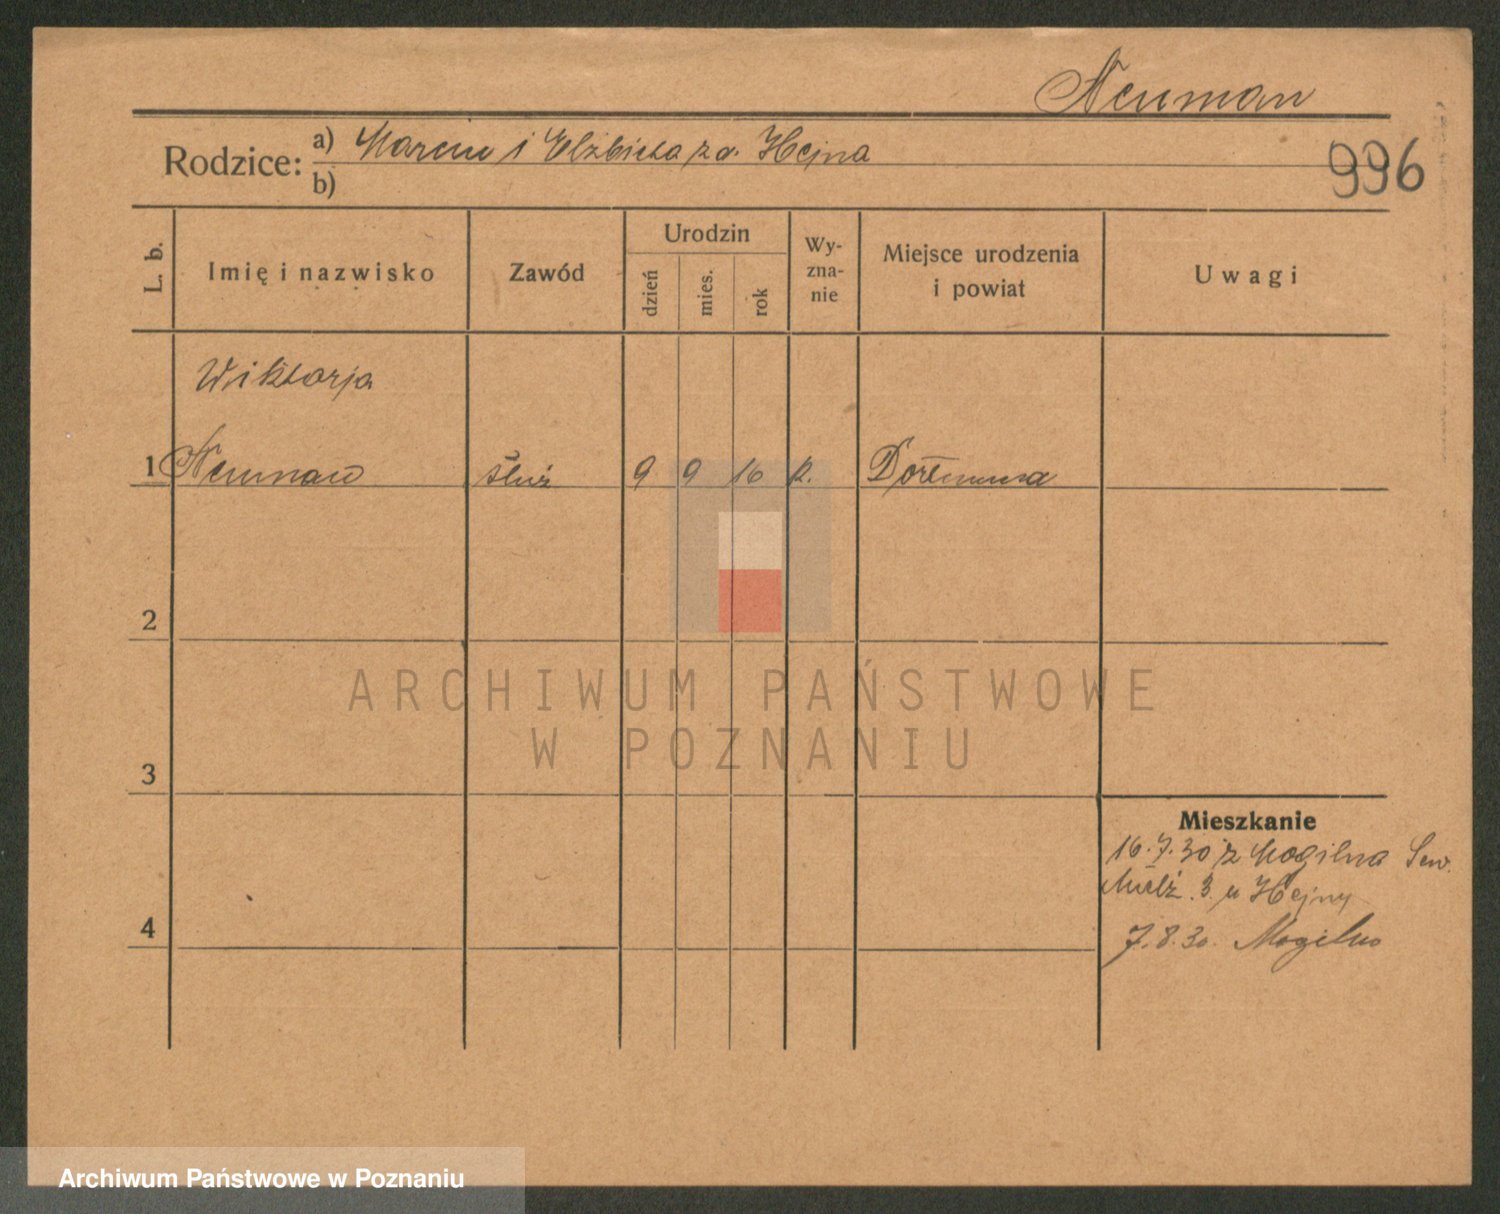 Neuman
Rodzice: a) Marcin i Elżbieta z d. Hejna
b)
996
L. b.
Imię i nazwisko
Zawód
Urodzin
dzień
mies.
rok
Wy-
zna-
nie
Miejsce urodzenia
i powiat
Uwagi
Wiktorja
1 Neuman służ 9 9 16 k. Dortmund
2
ARCHIWUM PAŃSTWOWE
W POZNANIU
3
Mieszkanie
16.7.30 z Mogilna Sew.
Mielż. 3 u Hejny
4
7.8.30. Mogilno
Archiwum Państwowe w Poznaniu